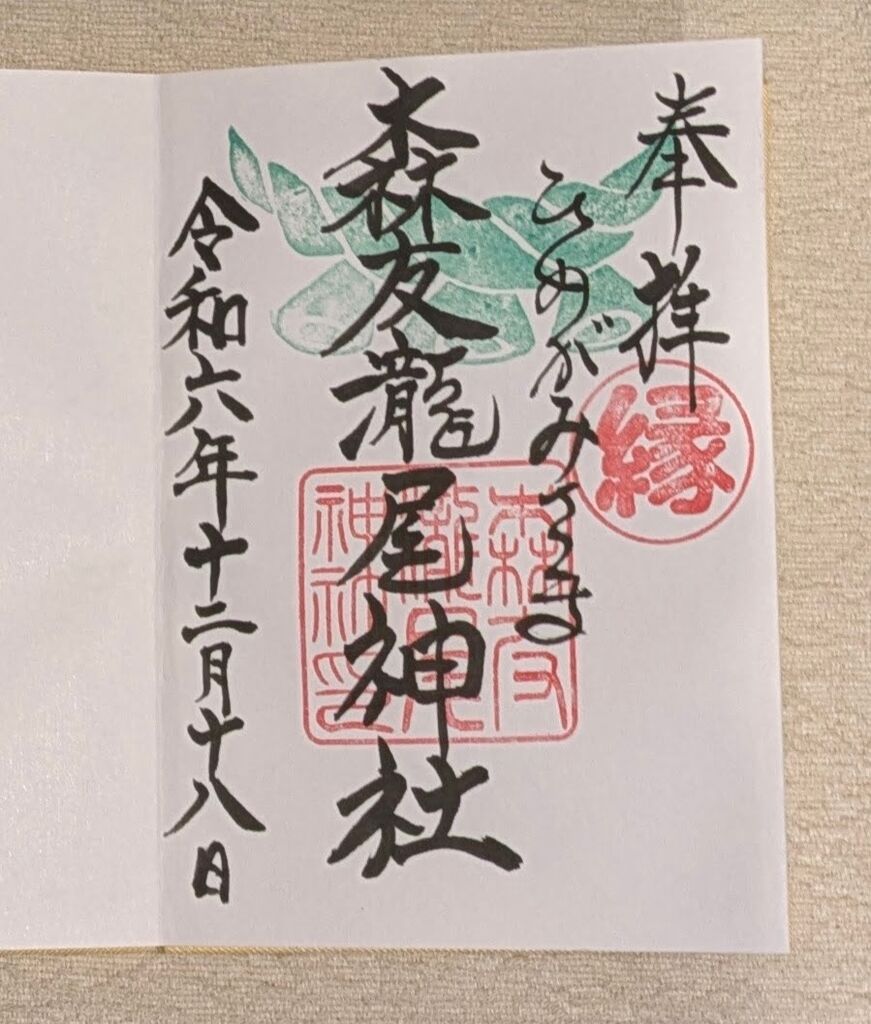 奉拝
縁
ひめがみさま
森友龍尾神社
森友
龍尾
神社印
令和六年十二月十八日